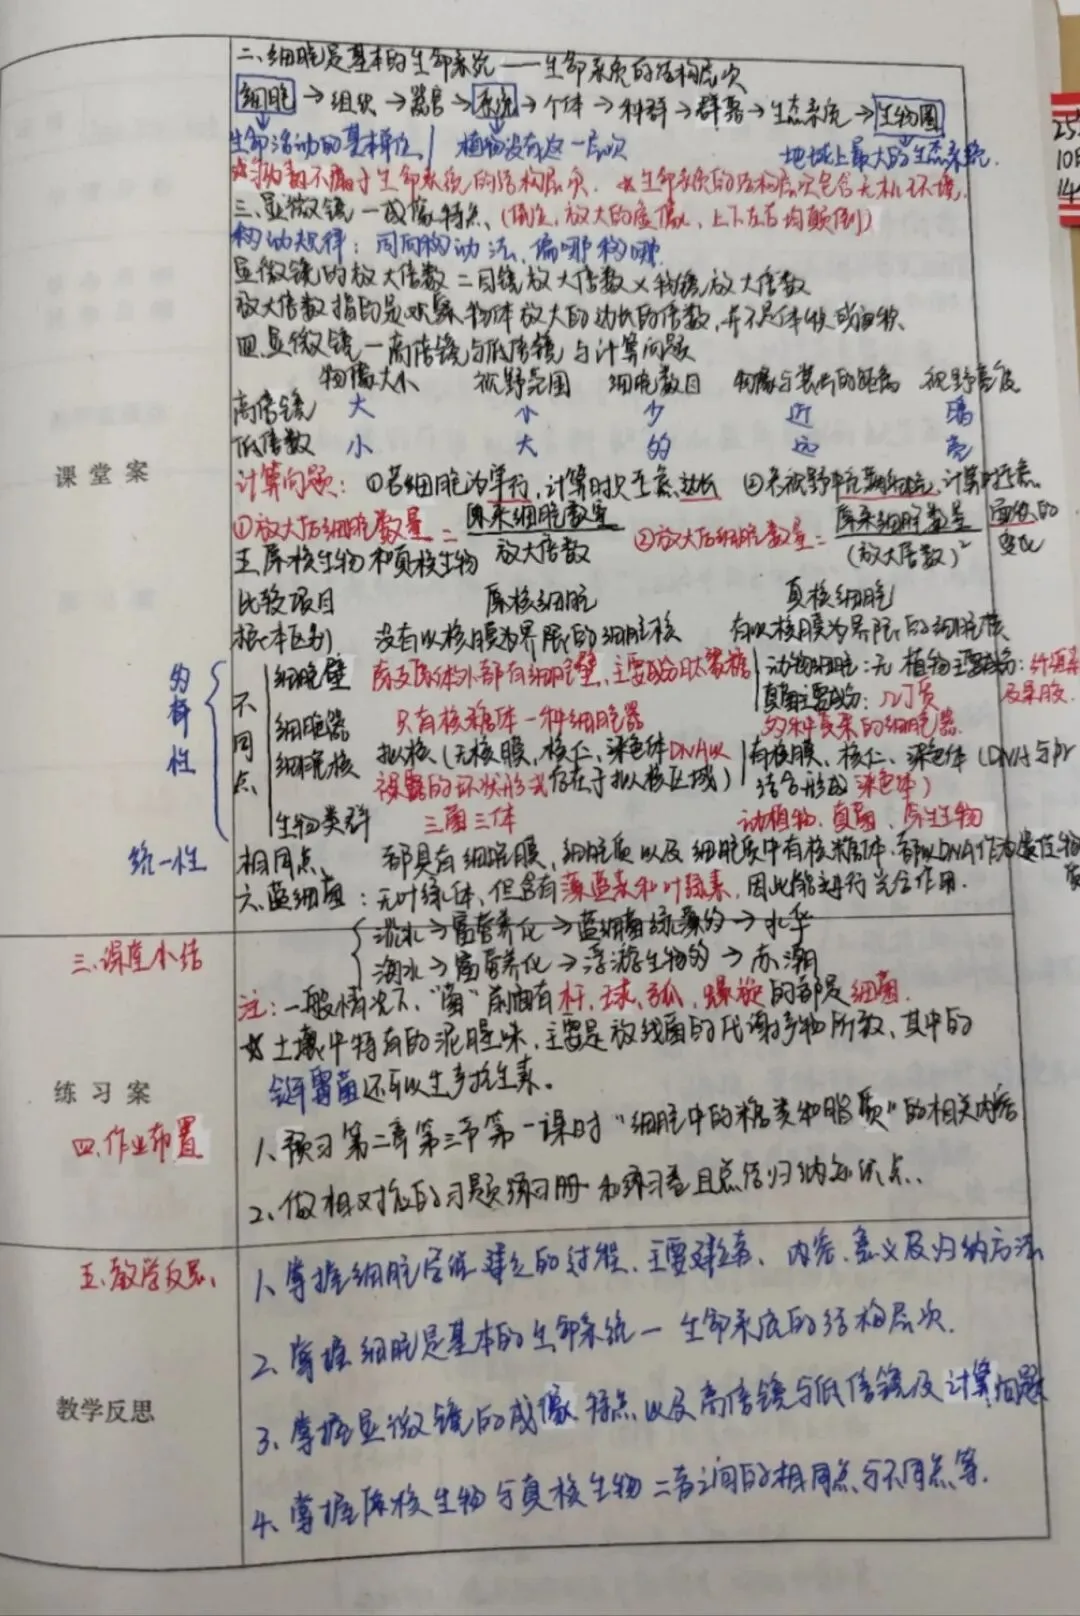 二、细胞是基本的生命系统——生命系统的结构层次
细胞→组织→器官→系统→个体→种群→群落→生态系统→生物圈
生命活动的基本单位 植物没有这一层次 地球上最大的生态系统.
☆病毒不属于生命系统的结构层次. ☆生命系统的结构层次包含无机环境.
三、显微镜—成像特点、(倒立、放大的虚像、上下左右均颠倒)
移动规律：同向移动法、偏哪移哪.
显微镜的放大倍数=目镜放大倍数×物镜放大倍数
放大倍数指的是观察物体放大的边长的倍数,并不是体积或面积.
四.显微镜—高倍镜与低倍镜与计算问题
物像大小 视野范围 细胞数目 物像与装片的距离 视野亮度
高倍镜 大 小 少 近 暗
低倍数 小 大 多 远 亮
计算问题：①若细胞为单行,计算时只考虑边长 ②若视野中充满细胞,计算时考虑面积的变化
①放大后细胞数量=原来细胞数量/放大倍数 ②放大后细胞数量=原来细胞数量/(放大倍数)²
五.原核生物和真核生物
比较项目 原核细胞 真核细胞
根本区别 没有以核膜为界限的细胞核 有以核膜为界限的细胞核
多样性 不同点
细胞壁 除支原体外都有细胞壁、主要成分肽聚糖 动物细胞：无 植物主要成分：纤维素及果胶.
真菌主要成分：几丁质
细胞器 只有核糖体一种细胞器 多种复杂的细胞器
细胞核 拟核(无核膜、核仁、染色体DNA以 有核膜、核仁、染色体(DNA与pr
裸露的环状形式存在于拟核区域) 结合形成染色体)
生物类群 三菌三体 动植物、真菌、原生生物
统一性 相同点、 都具有细胞膜、细胞质以及细胞质中有核糖体.都以DNA作为遗传物质
六、蓝细菌：无叶绿体、但含有藻蓝素和叶绿素、因此能进行光合作用.
淡水→富营养化→蓝细菌绿藻多→水华
海水→富营养化→浮游生物多→赤潮
注：一般情况下、“菌”前面有杆、球、弧、螺旋的都是细菌.
☆土壤中特有的泥腥味、主要是放线菌的代谢产物所致、其中的
链霉菌还可以生产抗生素。
课堂案
三.课堂小结
练习案
四.作业布置
1、预习第二章第三节第一课时“细胞中的糖类和脂质”的相关内容
2、做相对应的习题练习册和练习卷且总结归纳知识点.
五.教学反思、
教学反思
1、掌握细胞学说建立的过程、主要建立者、内容、意义及归纳方法
2、掌握细胞是基本的生命系统—生命系统的结构层次.
3、掌握显微镜的成像特点以及高倍镜与低倍镜及计算问题
4、掌握原核生物与真核生物二者之间的相同点与不同点等.
25.
10月
14